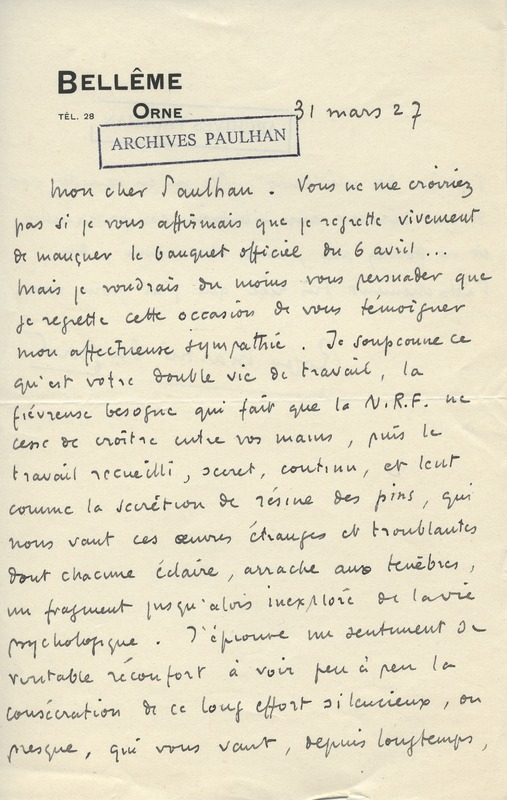 BELLÊME
TÉL. 28 ORNE
31 mars 27
ARCHIVES PAULHAN
Mon cher Paulhan. Vous ne me croiriez
pas si je vous affirmais que je regrette vivement
de manquer le banquet officiel du 6 avril ...
Mais je voudrais du moins vous persuader que
je regrette cette occasion de vous témoigner
mon affectueuse sympathie. Je soupçonne ce
qu'est votre double vie de travail, la
fiévreuse besogne qui fait que la N.R.F. ne
cesse de croître entre vos mains, puis le
travail recueilli, secret, continu, et lent
comme la secrétion de résine des pins, qui
nous vaut ces œuvres étranges et troublantes
dont chacune éclaire, arrache aux ténèbres,
un fragment jusqu'alors inexploré de la vie
psychologique. J'éprouve un sentiment de
véritable réconfort à voir peu à peu la
consécration de ce long effort silencieux, ou
presque, qui vous vaut, depuis longtemps,